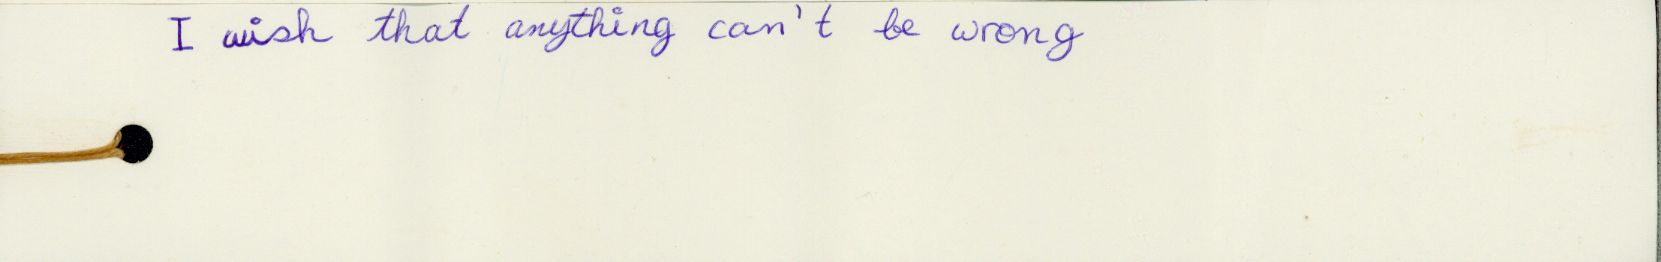 I wish that anything can't be wrong